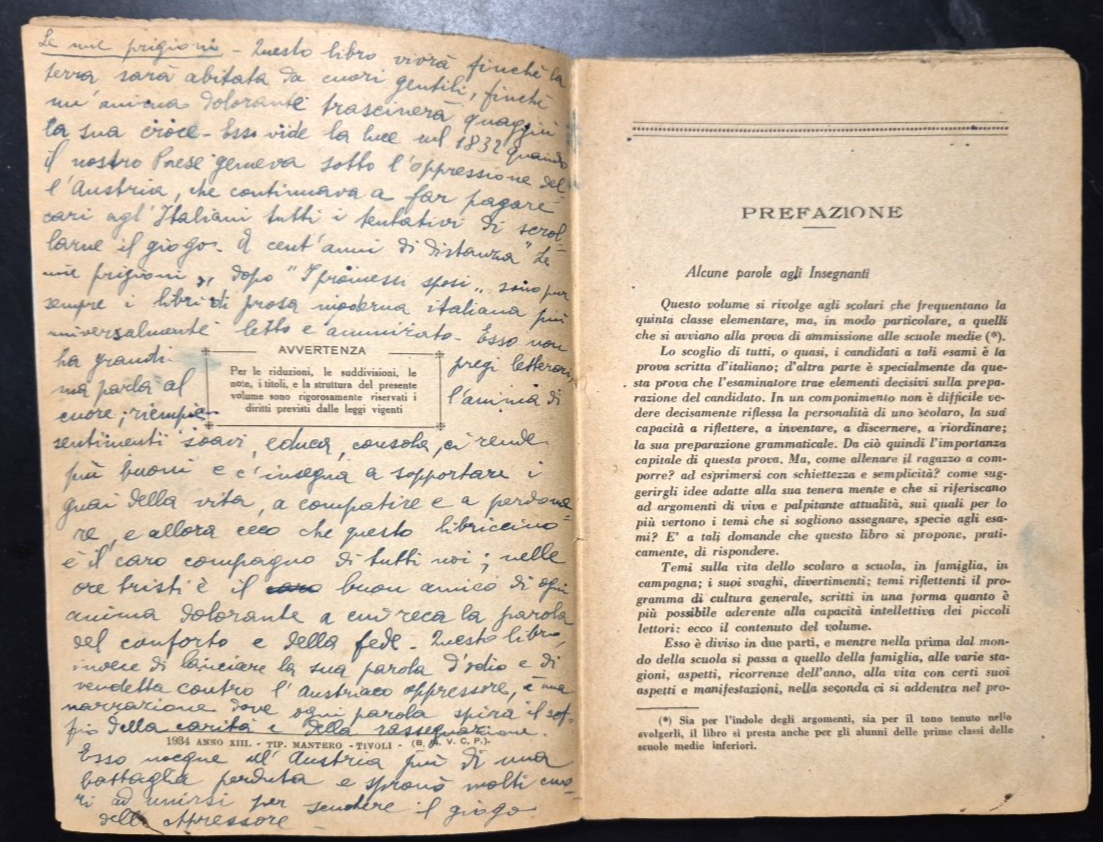 Le mie prigioni - Questo libro vivrà finchè la
terra sarà abitata da cuori gentili, finchè
un'anima dolorante trascinerà quaggiù
la sua croce - Esso vide la luce nel 1832 quando
il nostro Paese gemeva sotto l'oppressione del-
l'Austria, che continuava a far pagare
cari agl'Italiani tutti i tentativi di scrol-
larne il giogo. A cent'anni di distanza "Le
mie prigioni", dopo "I promessi sposi" sono pur
sempre i libri di prosa moderna italiana più
universalmente letto e ammirato. Esso non
ha grandi pregi letterari,
ma parla al
cuore; riempie l'anima di
AVVERTENZA
Per le riduzioni, le suddivisioni, le
note, i titoli, e la struttura del presente
volume sono rigorosamente riservati i
diritti previsti dalle leggi vigenti
sentimenti soavi, educa, consola, ci rende
più buoni e c'insegna a sopportare i
guai della vita, a compatire e a perdona-
re, e allora ecco che questo libriccino
è il caro compagno di tutti noi; nelle
ore tristi è il caro buon amico di ogni
anima dolorante a cui reca la parola
del conforto e della fede - Questo libro,
invece di lanciare la sua parola d'odio e di
vendetta contro l'Austriaco oppressore, è una
narrazione dove ogni parola spira il sof-
fio della carità e della rassegnazione.
1934 ANNO XIII. - TIP. MANTERO - TIVOLI - (B. A. V. C. P.)-
Esso nocque all'Austria più di una
battaglia perduta e spronò molti cuo-
ri ad unirsi per scuotere il giogo
dell'oppressore -
PREFAZIONE
Alcune parole agli Insegnanti
Questo volume si rivolge agli scolari che frequentano la
quinta classe elementare, ma, in modo particolare, a quelli
che si avviano alla prova di ammissione alle scuole medie (*).
Lo scoglio di tutti, o quasi, i candidati a tali esami è la
prova scritta d'italiano; d'altra parte è specialmente da que-
sta prova che l'esaminatore trae elementi decisivi sulla prepa-
razione del candidato. In un componimento non è difficile ve-
dere decisamente riflessa la personalità di uno scolaro, la sua
capacità a riflettere, a inventare, a discernere, a riordinare;
la sua preparazione grammaticale. Da ciò quindi l'importanza
capitale di questa prova. Ma, come allenare il ragazzo a com-
porre? ad esprimersi con schiettezza e semplicità? come sug-
gerirgli idee adatte alla sua tenera mente e che si riferiscano
ad argomenti di viva e palpitante attualità, sui quali per lo
più vertono i temi che si sogliono assegnare, specie agli esa-
mi? E' a tali domande che questo libro si propone, prati-
camente, di rispondere.
Temi sulla vita dello scolaro a scuola, in famiglia, in
campagna; i suoi svaghi, divertimenti; temi riflettenti il pro-
gramma di cultura generale, scritti in una forma quanto è
più possibile aderente alla capacità intellettiva dei piccoli
lettori: ecco il contenuto del volume.
Esso è diviso in due parti, e mentre nella prima dal mon-
do della scuola si passa a quello della famiglia, alle varie sta-
gioni, aspetti, ricorrenze dell'anno, alla vita con certi suoi
aspetti e manifestazioni, nella seconda ci si addentra nel pro-
(*) Sia per l'indole degli argomenti, sia per il tono tenuto nello
svolgerli, il libro si presta anche per gli alunni delle prime classi delle
scuole medie inferiori.